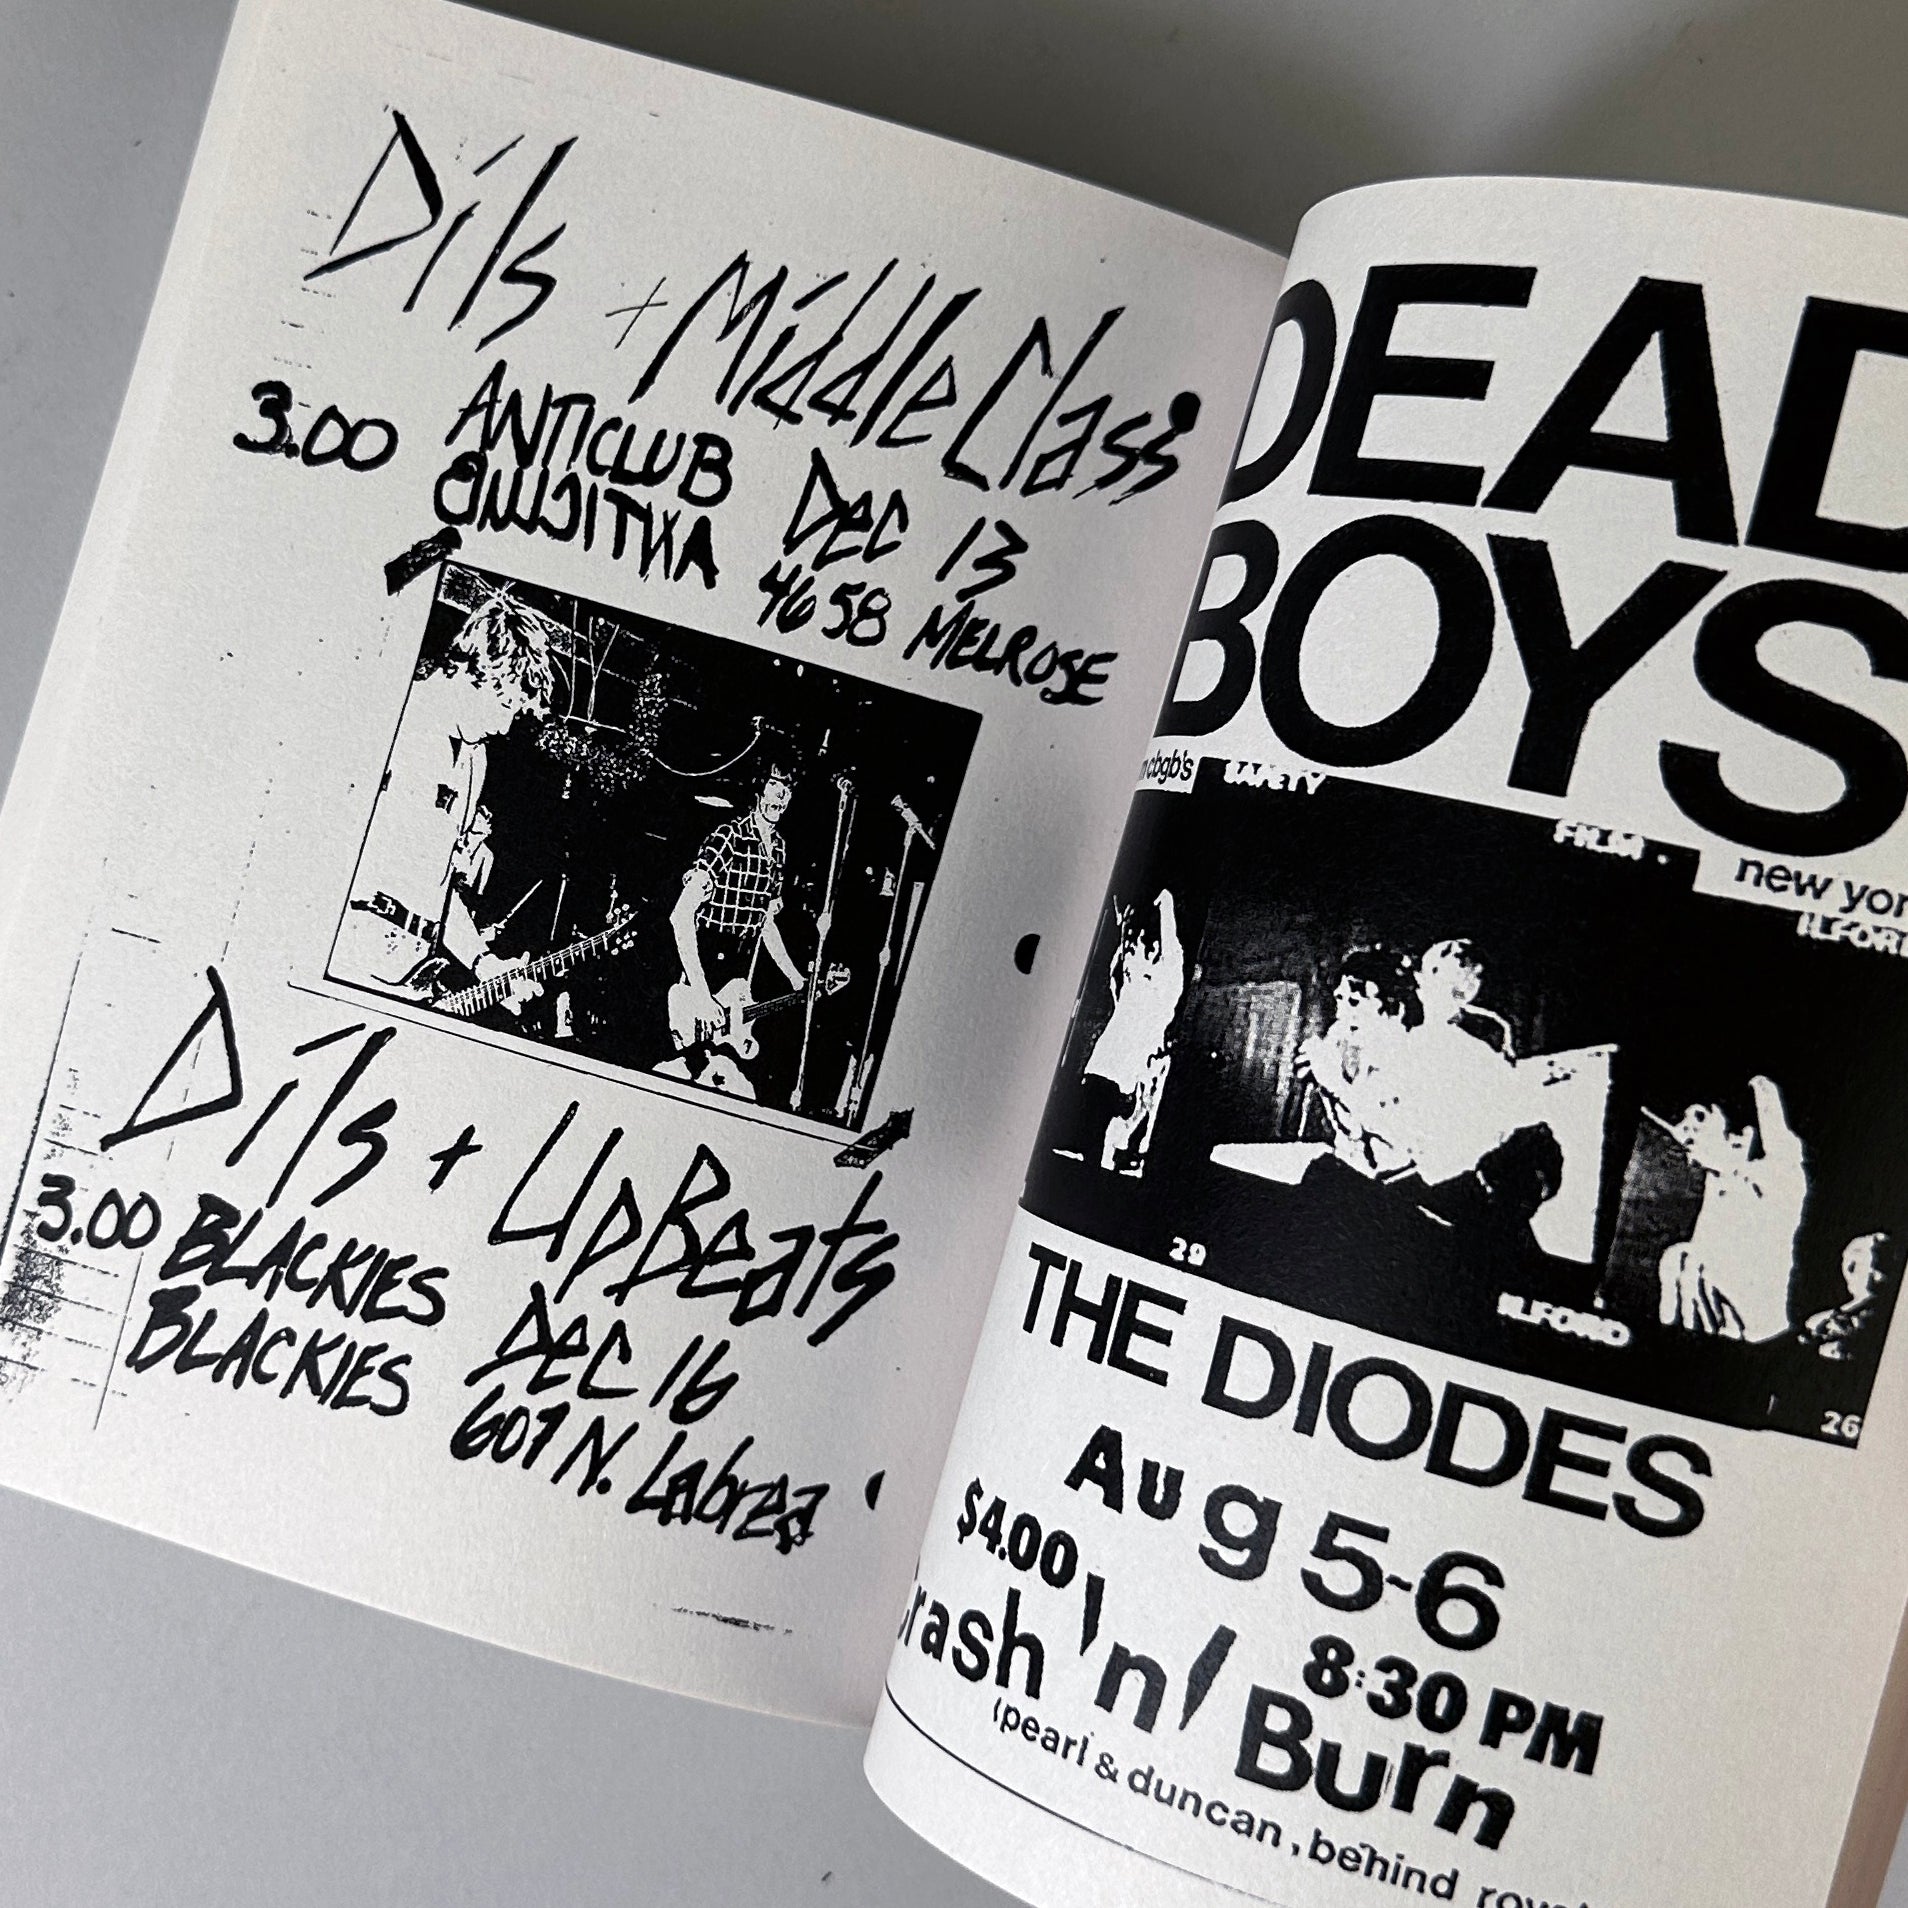 Dils + Middle Class
3.00 ANTICLUB Dec 13
ANTICLUB 4658 MELROSE
Dils + UpBeats
3.00 BLACKIES Dec 16
BLACKIES 607 N. Labrea
DEAD
BOYS
cbgb's SAFETY FILM
new yor
ILFOR
29 ILFORD 26
THE DIODES
Aug 5-6
$4.00 8:30 PM
Crash 'n' Burn
(pearl & duncan, behind roy